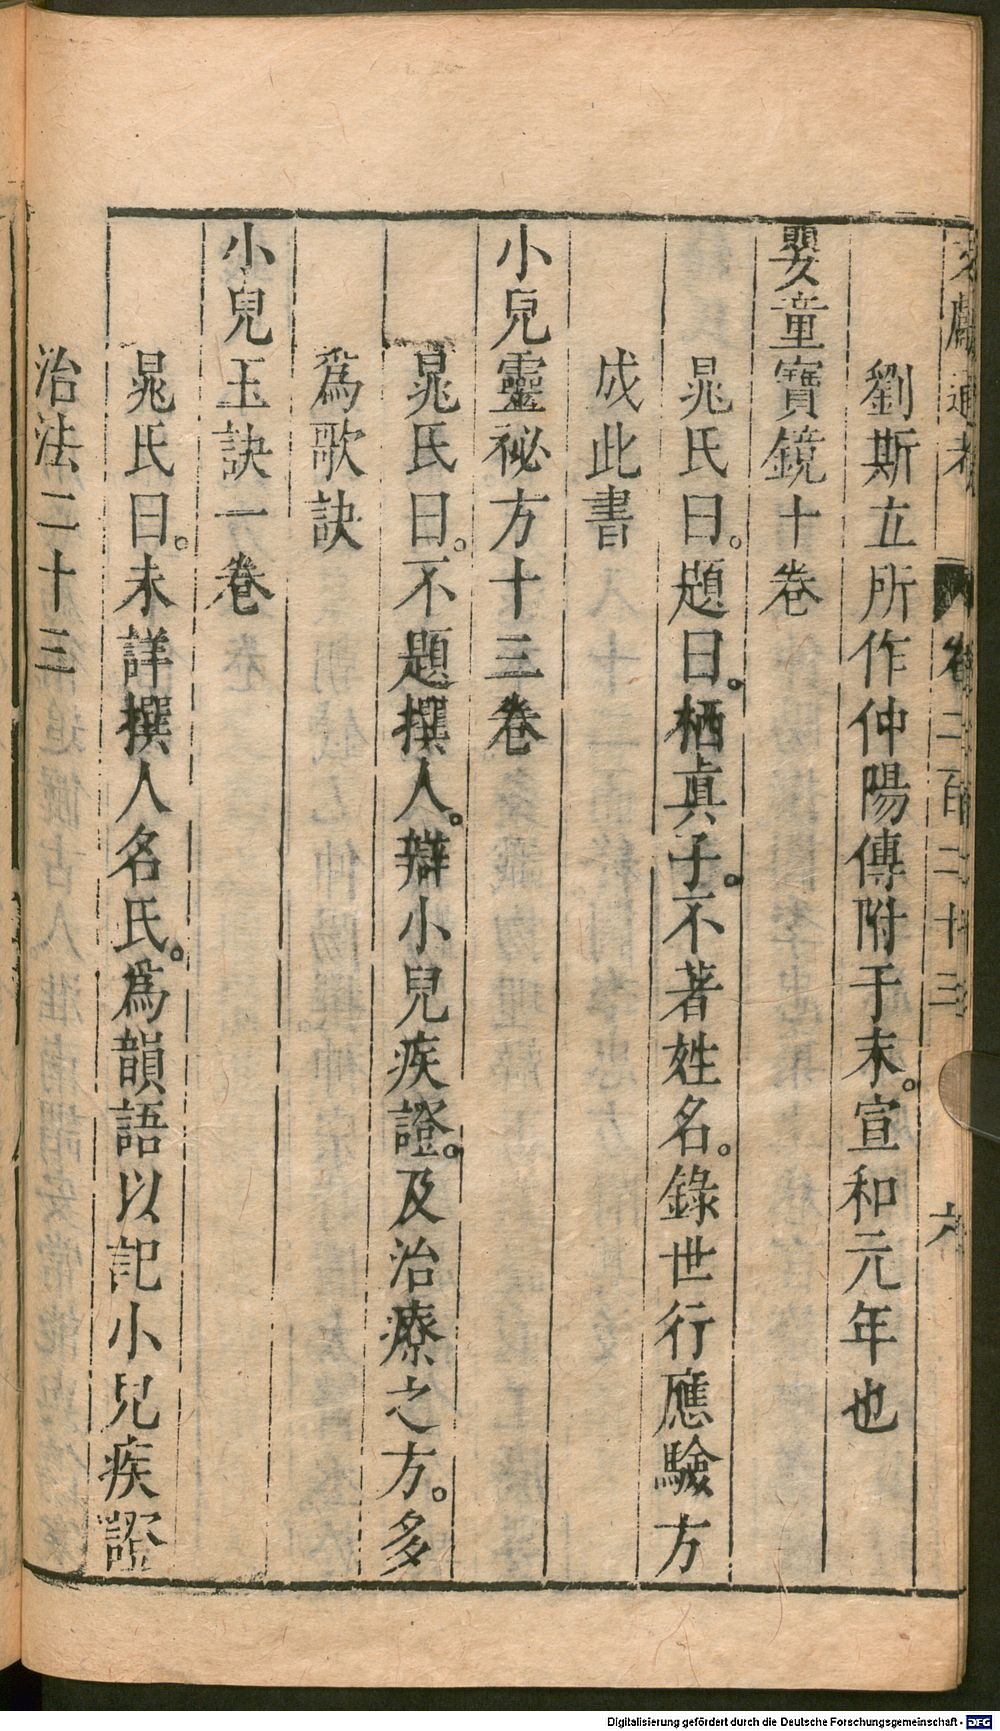 文獻通考 卷二百二十三 六
劉斯立所作仲陽傳附于末。宣和元年也
嬰童寶鏡十卷
晁氏曰。題曰。栖眞子。不著姓名。錄世行應驗方
成此書
小兒靈祕方十三卷
晁氏曰。不題撰人。辯小兒疾證。及治療之方。多
爲歌訣
小兒玉訣一卷
晁氏曰。未詳撰人名氏。爲韻語以記小兒疾證
治法二十三
Digitalisierung gefördert durch die Deutsche Forschungsgemeinschaft - DFG